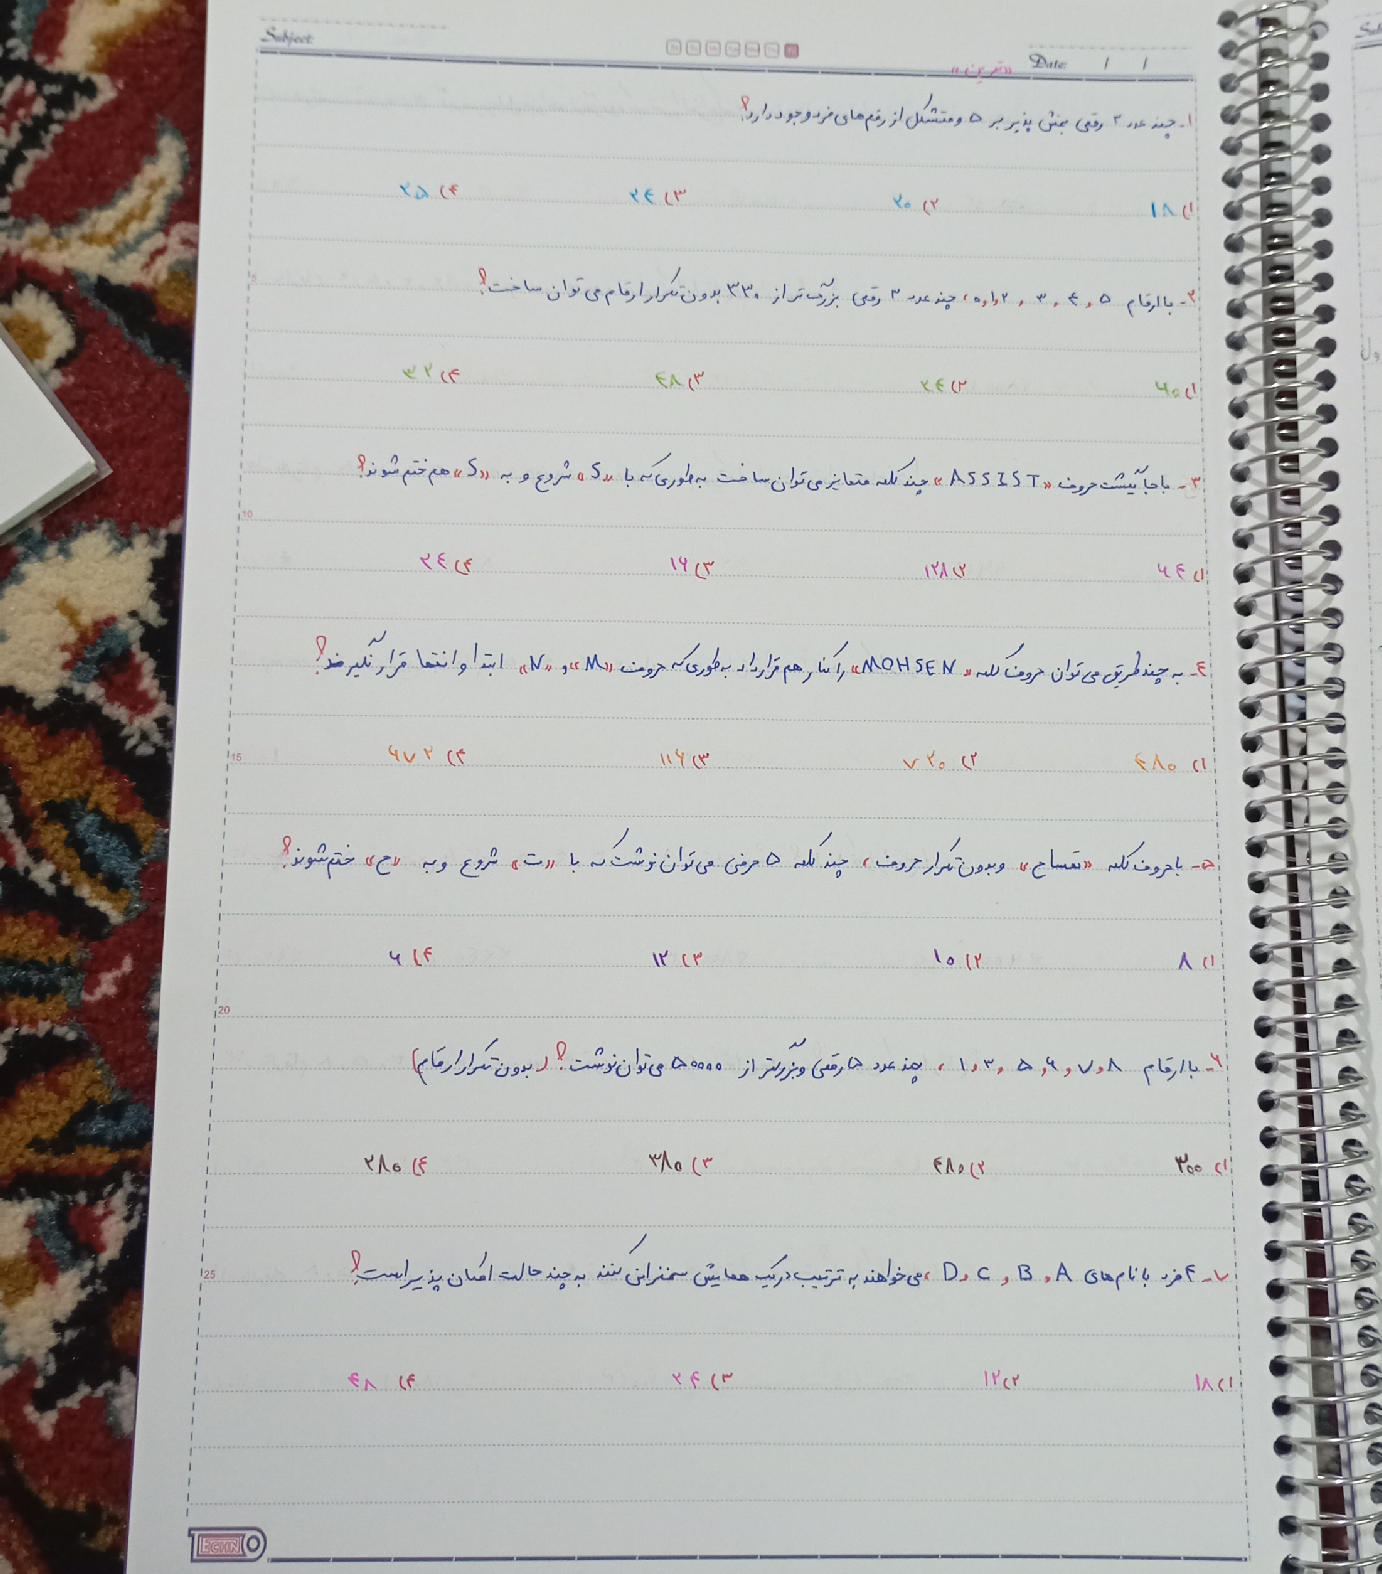 Subject:
Date: / /
«تمرین»
۱- چند عدد ۳ رقمی بخش پذیر بر ۵ و متشکل از رقم‌های فرد وجود دارد؟
۱) ۱۸ ۲) ۲۰ ۳) ۲۴ ۴) ۲۵
۲- با ارقام ۵، ۴، ۳، ۲، ۱، ۰، چند عدد ۳ رقمی بزرگ‌تر از ۳۳۰ بدون تکرار ارقام می توان ساخت؟
۱) ۶۰ ۲) ۲۴ ۳) ۴۸ ۴) ۳۲
۳- با جابه‌جایی حروف «ASSIST» چند کلمه متمایز می توان ساخت به طوری که با «S» شروع و به «S» هم ختم شوند؟
۱) ۶۴ ۲) ۱۲۸ ۳) ۱۶ ۴) ۲۴
۴- به چند طریق می توان حروف کلمه «MOHSEN» را کنار هم قرار داد به طوری که حروف «M» و «N» ابتدا و انتها قرار نگیرند؟
۱) ۴۸۰ ۲) ۷۲۰ ۳) ۱۱۶ ۴) ۶۷۲
۵- با حروف کلمه «تمساح» و بدون تکرار حروف، چند کلمه ۵ حرفی می توان نوشت که با «ت» شروع و به «ح» ختم شوند؟
۱) ۸ ۲) ۱۰ ۳) ۱۲ ۴) ۶
۶- با ارقام ۸، ۷، ۶، ۵، ۳، ۱، چند عدد ۵ رقمی و بزرگتر از ۵۰۰۰۰ می توان نوشت؟ (بدون تکرار ارقام)
۱) ۳۰۰ ۲) ۴۸۰ ۳) ۳۸۰ ۴) ۲۸۰
۷- ۴ فرد با نام‌های A، B، C، D، می خواهند به ترتیب در یک همایش سخنرانی کنند به چند حالت امکان پذیر است؟
۱) ۱۸ ۲) ۱۲ ۳) ۲۴ ۴) ۴۸
5
10
15
20
25
TECHNO